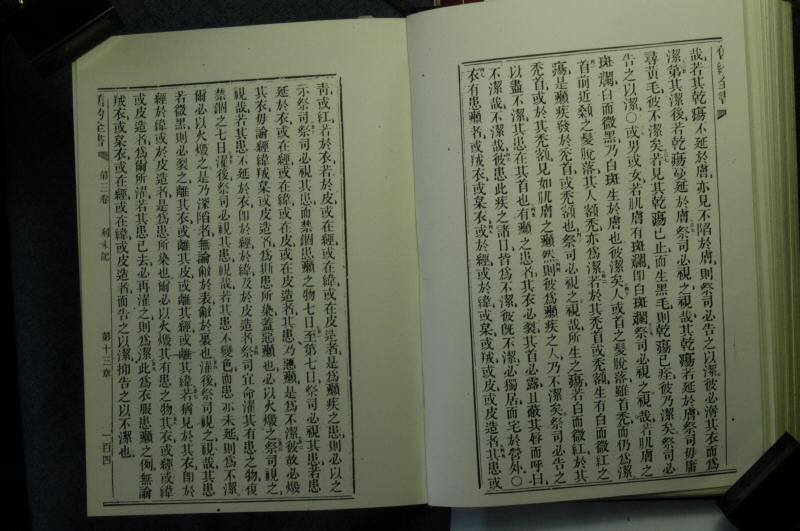 舊約全書
哉若其乾瘍不延於膚亦見不陷於膚則祭司必告之以潔彼必澣其衣而爲
潔第其潔後若乾瘍蔓延於膚祭司必視之視哉其乾瘍若延於膚祭司毋庸
尋黃毛彼不潔矣若見其乾瘍已止而生黑毛則乾瘍已痊彼乃潔矣祭司必
告之以潔○或男或女若肌膚有斑斕即白斑斕祭司必視之視哉若肌膚之
斑斕白而微黑乃白斑生於膚也彼潔矣人或首之髮脫落雖首禿而仍爲潔
首前近顙之髮脫落其人額禿亦爲潔若於其禿首或禿額生有白而微紅之
瘍是癩疾發於禿首或禿額也祭司必視之視哉所生之瘍若白而微紅於其
禿首或於其禿額見如肌膚之癩然則彼爲癩疾之人乃不潔矣祭司必告之
以盡不潔其患在其首也有癩之患者其衣必裂其首必露且蔽其唇而呼曰
不潔哉不潔哉彼患此疾之諸日皆爲不潔彼旣不潔必獨居而宅於營外○
衣有患癩者或羢衣或枲衣或於經或於緯或枲或羢或皮或皮造者其患或
靑或紅於衣若於皮或在經或在緯或在皮造者是爲癩疾之患則必以之
示祭司祭司必視其患而禁錮患癩之物七日至第七日祭司必視其患若患
延於衣或在經或在緯或在皮或在皮造者其患乃癩是爲不潔彼故必燬
其衣毋論經緯羢枲或皮造者爲斯患所染蓋惡癩也必以火燬之祭司視之
視哉若其患不延於衣即於經於緯及於皮造者祭司宜命濯其有患之物復
禁錮之七日濯後祭司必視其患視哉若其患不變色而患亦未延則爲不潔
爾必以火燬之是乃深陷者無論敝於表敝於裏也濯後祭司視之視哉其患
若微黑則必裂之離其衣或離其皮或離其經或離其緯若猶見於其衣即於
經於緯或於皮造者是爲患所染也爾必以火燬其有患之物其衣或經或緯
或皮造者爲爾所濯若其患已去必再濯之則爲潔此爲衣服患癩之例無論
羢衣或枲衣或在經或在緯或皮造者而告之以潔抑告之以不潔也
舊約全書 第三卷 利未記 第十三章 一百四